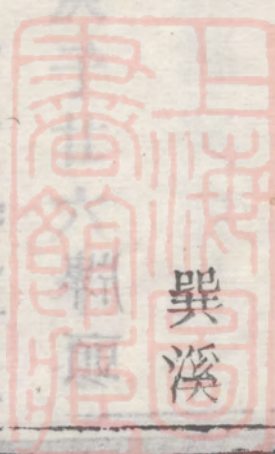 上海圖
書館藏
巽溪